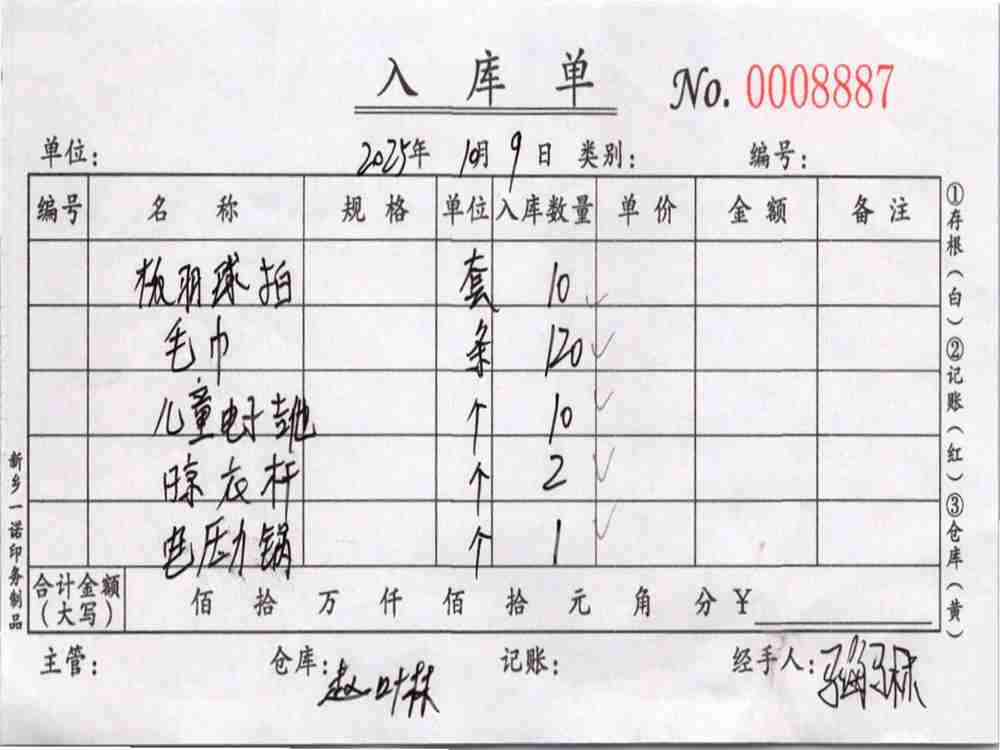 入库单 No. 0008887
单位: 2025年 10月 9日 类别: 编号:
编号 名称 规格 单位 入库数量 单价 金额 备注
板羽球拍 套 10 ✓
毛巾 条 120 ✓
儿童电子吉他 个 10 ✓
晾衣杆 个 2 ✓
电压力锅 个 1 ✓
合计金额(大写) 佰 拾 万 仟 佰 拾 元 角 分 ¥
主管: 仓库:赵叶林 记账: 经手人:
①存根(白)②记账(红)③仓库(黄)
新乡一诺印务制品